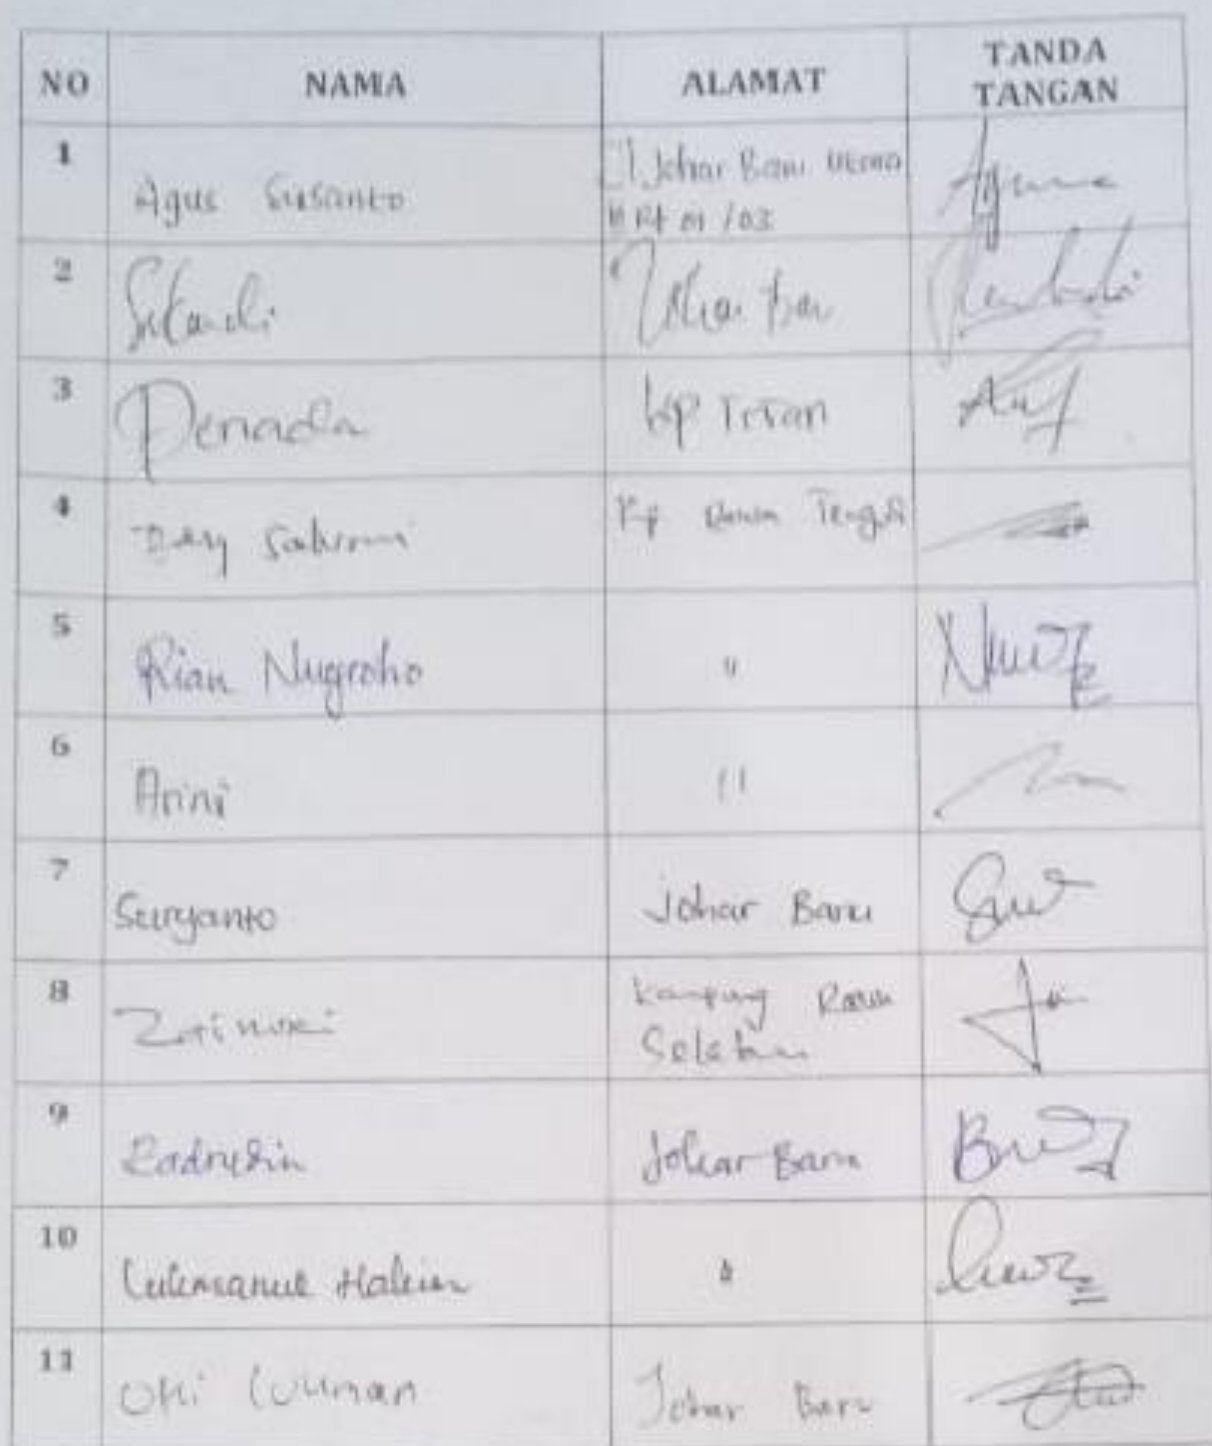 NO NAMA ALAMAT TANDA TANGAN
1 Agus Susanto Jl Johar Baru Utama
Rt 01 / 03
2 Johar Baru
3 Denada Kp Irian
4 Kp Rawa Tengah
5 Rian Nugroho "
6 Arini "
7 Suryanto Johar Baru
8 Kampung Rawa
Selatan
9 Badrudin Johar Baru
10 Lukmanul Hakim "
11 Oki Johar Baru